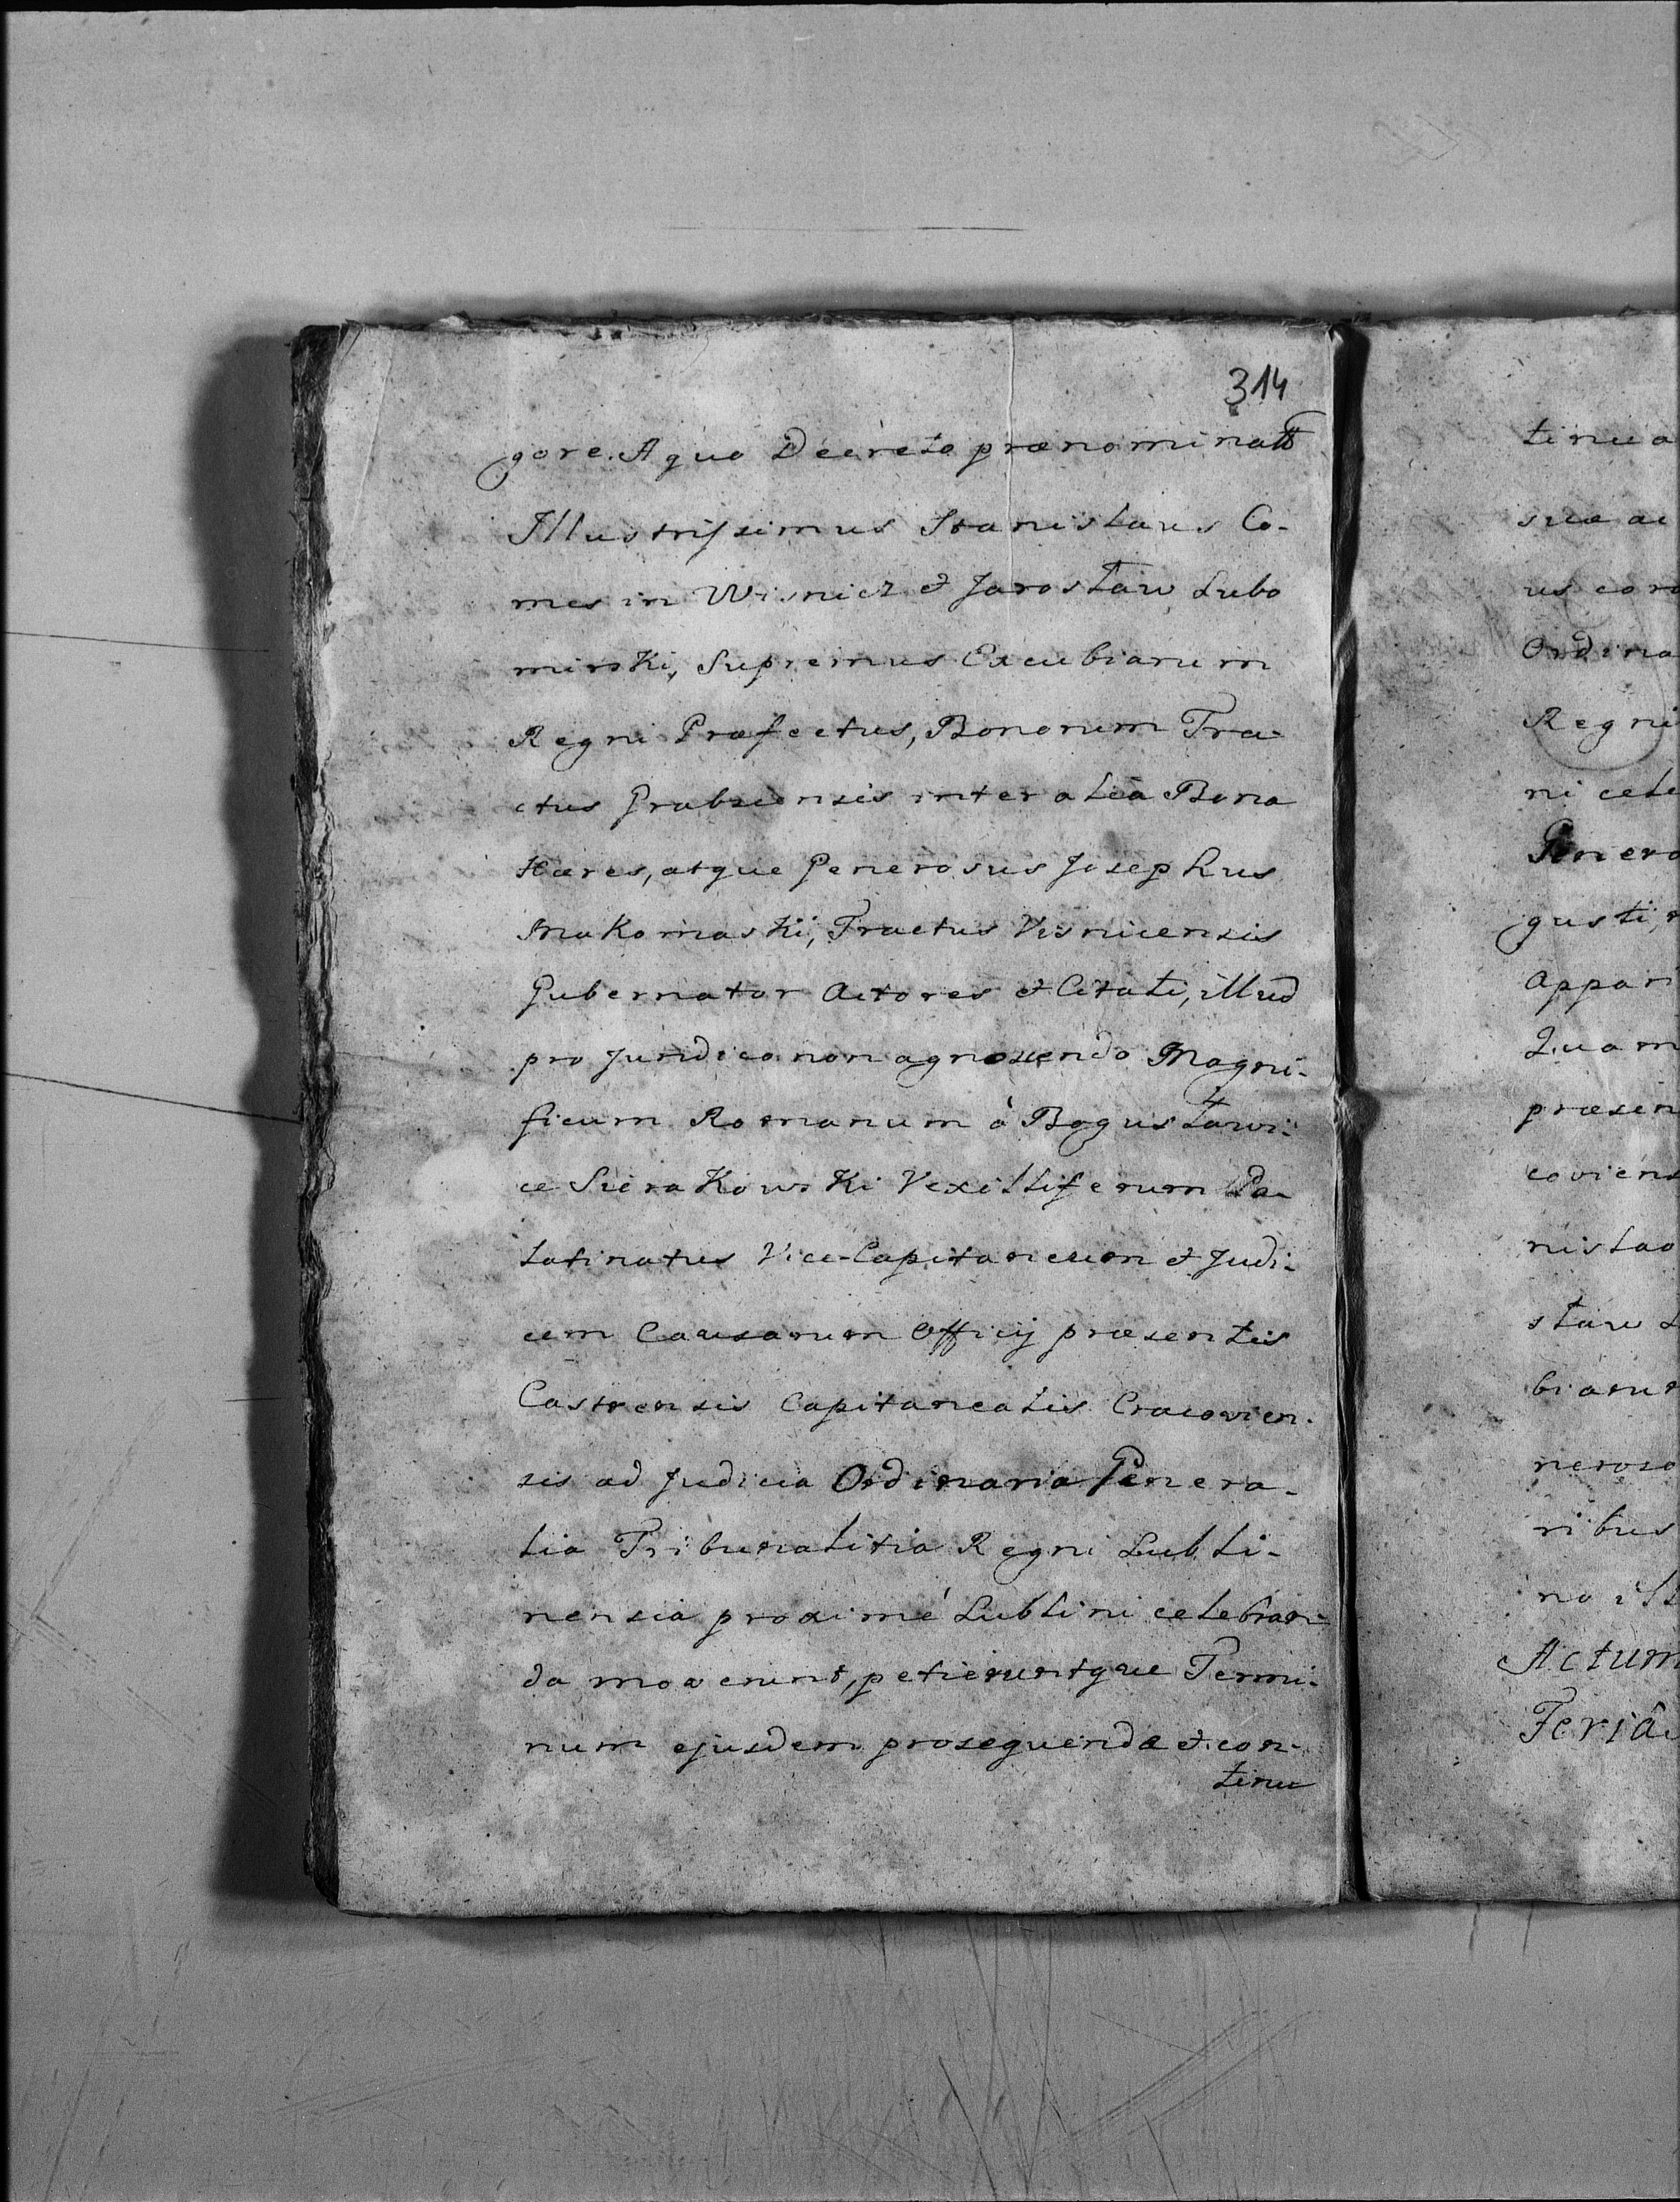 314
gore. A quo Decreto prænominatô
Illustrissimus Stanislaus Co-
mes in Wisnicz & Jarosław Lubo
mirski, Supremus Excubiarum
Regni Præfectus, Bonorum Tra-
ctus Grabiensis inter alia Bona
Hæres, atque Generosus Josephus
Makomaski, Tractus Visnicensis
Gubernator Actores et Citati, illud
pro Juridico non agnoscendo Magni-
ficum Romanum à Bogusławi-
ce Sierakowski Vexilliferum Pa-
latinatus Vice-Capitaneum et Judi-
cem Causarum Officij præsentis
Castrensis Capitanealis Cracovien-
sis ad Judicia Ordinaria Genera-
lia Tribunalitia Regni Lubli-
nensia proximé Lublini celebran-
da moverunt, petieruntque Termi-
num ejusdem prosequendæ et con-
tinu
tinua
suæ ac
us cor
Ordina
Regni
ni cele
Genero
gusti,
appari
Quam
præsen
coviens
nislao
staw L
biarum
neroso
ribus
no
Actum
Feriâ